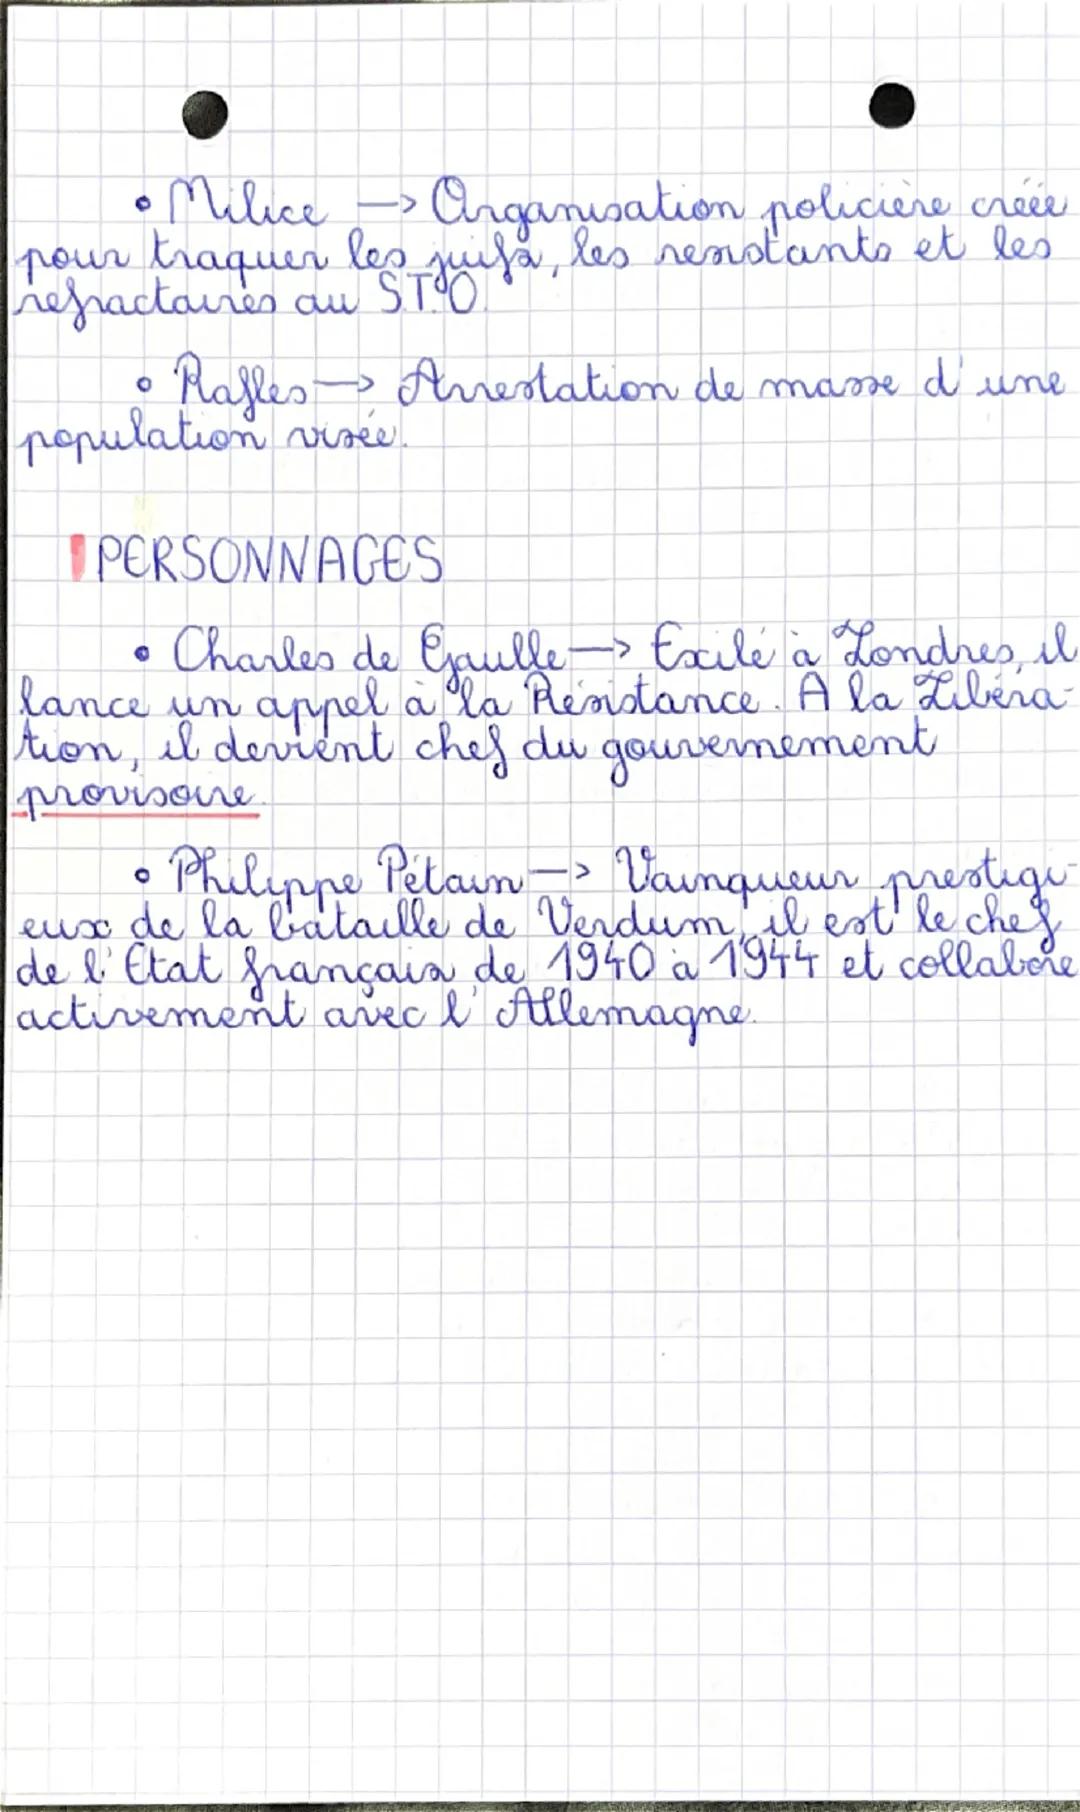 • Milice → Organisation policière créée
pour traquer les juifs, les resistants et les
refractaires au S.T.O.
• Rafles → Arrestation de masse d'une
population visée.
PERSONNAGES
• Charles de Gaulle → Exilé à Londres, il
lance un appel à la Résistance. A la Libéra-
tion, il devient chef du gouvernement
provisoire.
• Philippe Pétain → Vainqueur prestigi-
eux de la bataille de Verdum, il est le chef
de l'Etat français de 1940 à 1944 et collabore
activement avec l'Allemagne.